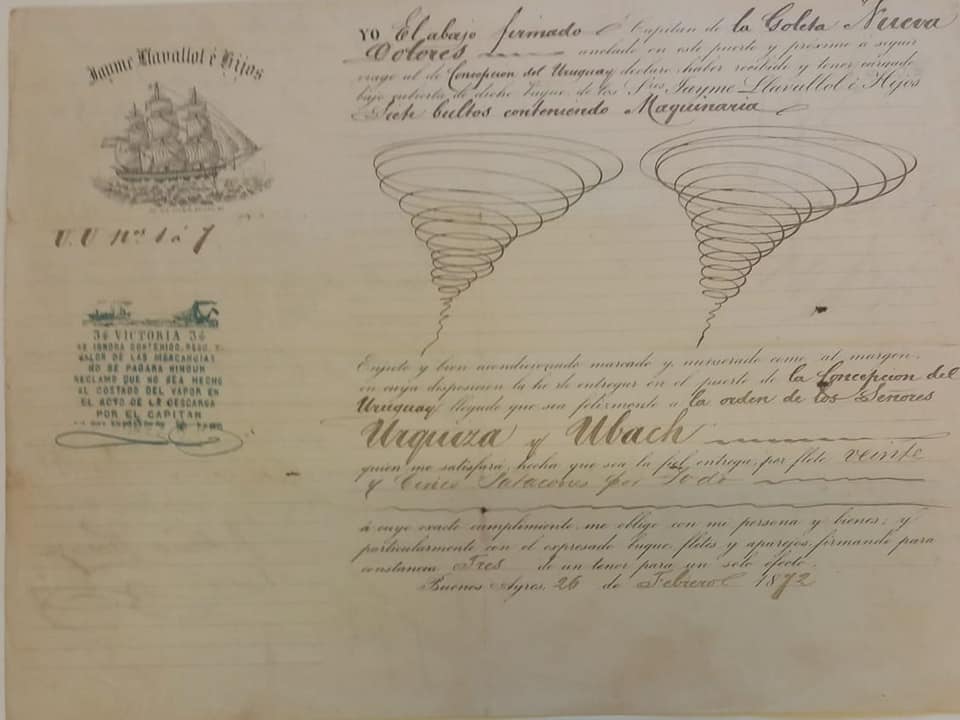 Jayme Llavallol é Hijos
U.U nos 1 á 7
34 VICTORIA 34
SE IGNORA CONTENIDO, PESO, Y
VALOR DE LAS MERCANCIAS
NO SE PAGARA NINGUN
RECLAMO QUE NO SEA HECHO
AL COSTADO DEL VAPOR EN
EL ACTO DE LA DESCARGA
POR EL CAPITAN
YO El abajo firmado Capitan de la Goleta Nueva
Dolores anclado en este puerto y proximo a seguir
viage al de Concepcion del Uruguay declaro haber recibido y tener cargado
bajo cubierta de dicho buque de los Sres Jayme Llavallol é Hijos
bultos conteniendo Maquinaria
Enjuto y bien acondicionado marcado y numerado como al margen,
en cuya disposicion la he de entregar en el puerto de la Concepcion del
Uruguay llegado que sea felizmente a la orden de los Señores
Urquiza y Ubach
quien me satisfará, hecha que sea la fiel entrega, por flete veinte
y Cinco Patacones por Todo
á cuyo exacto cumplimiento me obligo con mi persona y bienes, y
particularmente con el expresado buque, fletes y aparejos, firmando para
constancia Tres de un tenor para un solo efecto.
Buenos Ayres, 26 de Febrero 1872